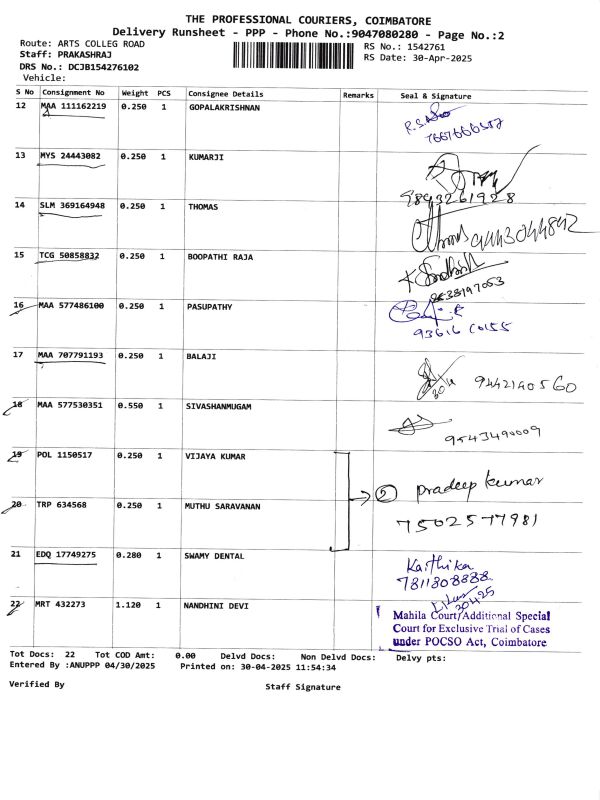 THE PROFESSIONAL COURIERS, COIMBATORE
Delivery Runsheet - PPP - Phone No.:9047080280 - Page No.:2
Route: ARTS COLLEG ROAD
RS No.: 1542761
Staff: PRAKASHRAJ
RS Date: 30-Apr-2025
DRS No.: DCJB154276102
Vehicle:
S No Consignment No Weight PCS Consignee Details Remarks Seal & Signature
12 MAA 111162219 0.250 1 GOPALAKRISHNAN
13 MYS 24443082 0.250 1 KUMARJI
9843261928
14 SLM 369164948 0.250 1 THOMAS
9443044842
15 TCG 50858832 0.250 1 BOOPATHI RAJA
16 MAA 577486100 0.250 1 PASUPATHY
17 MAA 707791193 0.250 1 BALAJI
9442140560
18 MAA 577530351 0.550 1 SIVASHANMUGAM
9543490009
19 POL 1150517 0.250 1 VIJAYA KUMAR
2 Pradeep kumar
20 TRP 634568 0.250 1 MUTHU SARAVANAN
7502577981
21 EDQ 17749275 0.280 1 SWAMY DENTAL
Karthika
7811808888
22 MRT 432273 1.120 1 NANDHINI DEVI
Mahila Court/Additional Special
Court for Exclusive Trial of Cases
under POCSO Act, Coimbatore
Tot Docs: 22 Tot COD Amt: 0.00 Delvd Docs: Non Delvd Docs: Delvy pts:
Entered By :ANUPPP 04/30/2025 Printed on: 30-04-2025 11:54:34
Verified By
Staff Signature